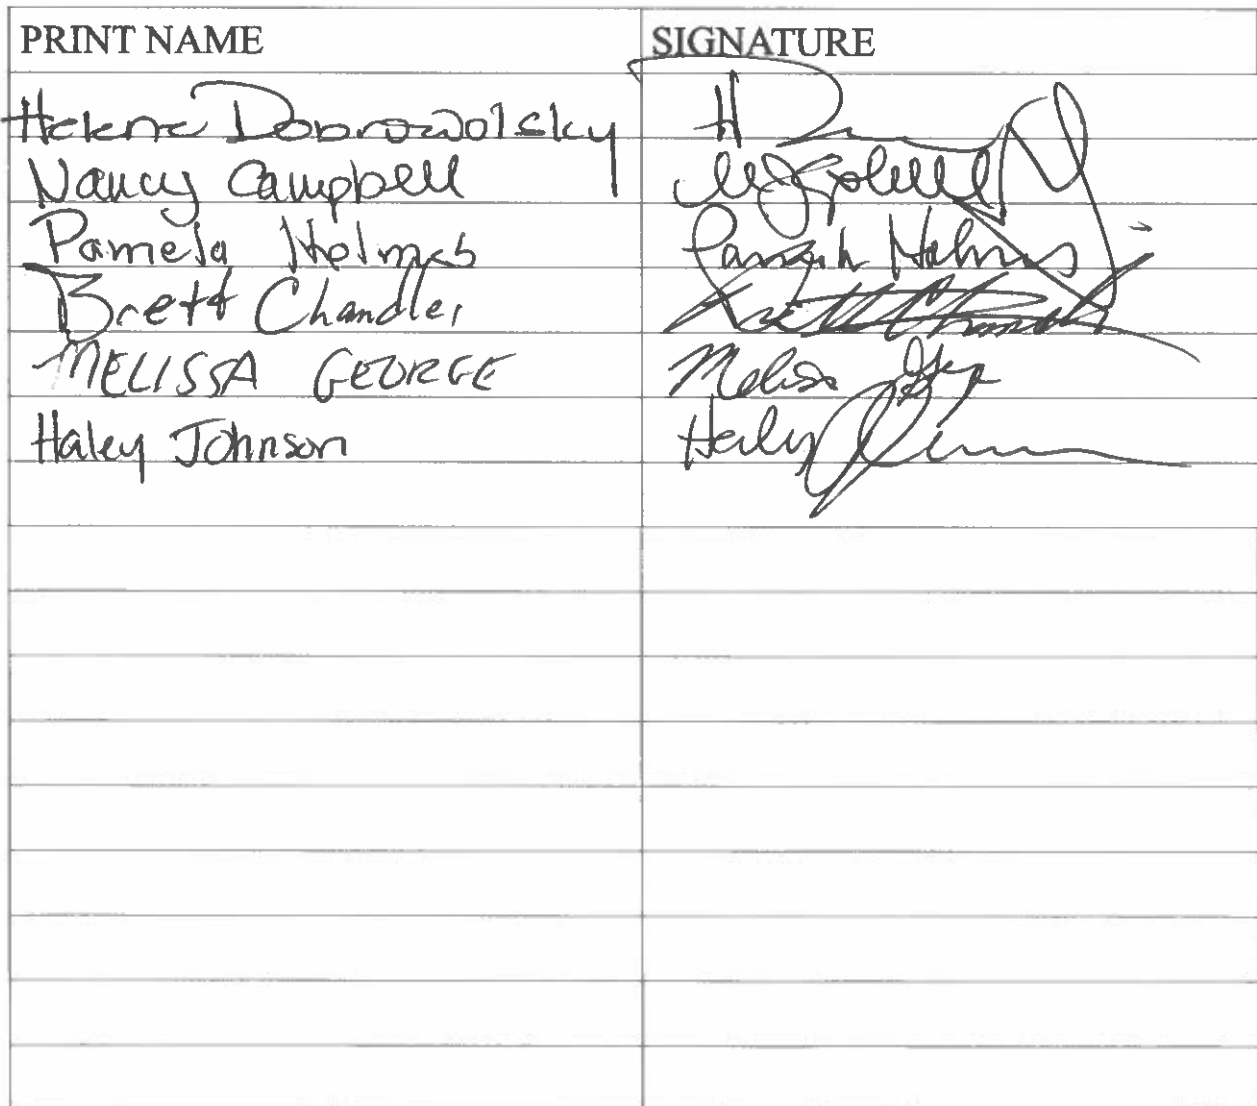 PRINT NAME SIGNATURE
Helene Dobrowolsky H
Nancy Campbell
Pamela Holmes Pamela Holmes
Brett Chandler
MELISSA GEORGE Melissa
Haley Johnson Haley